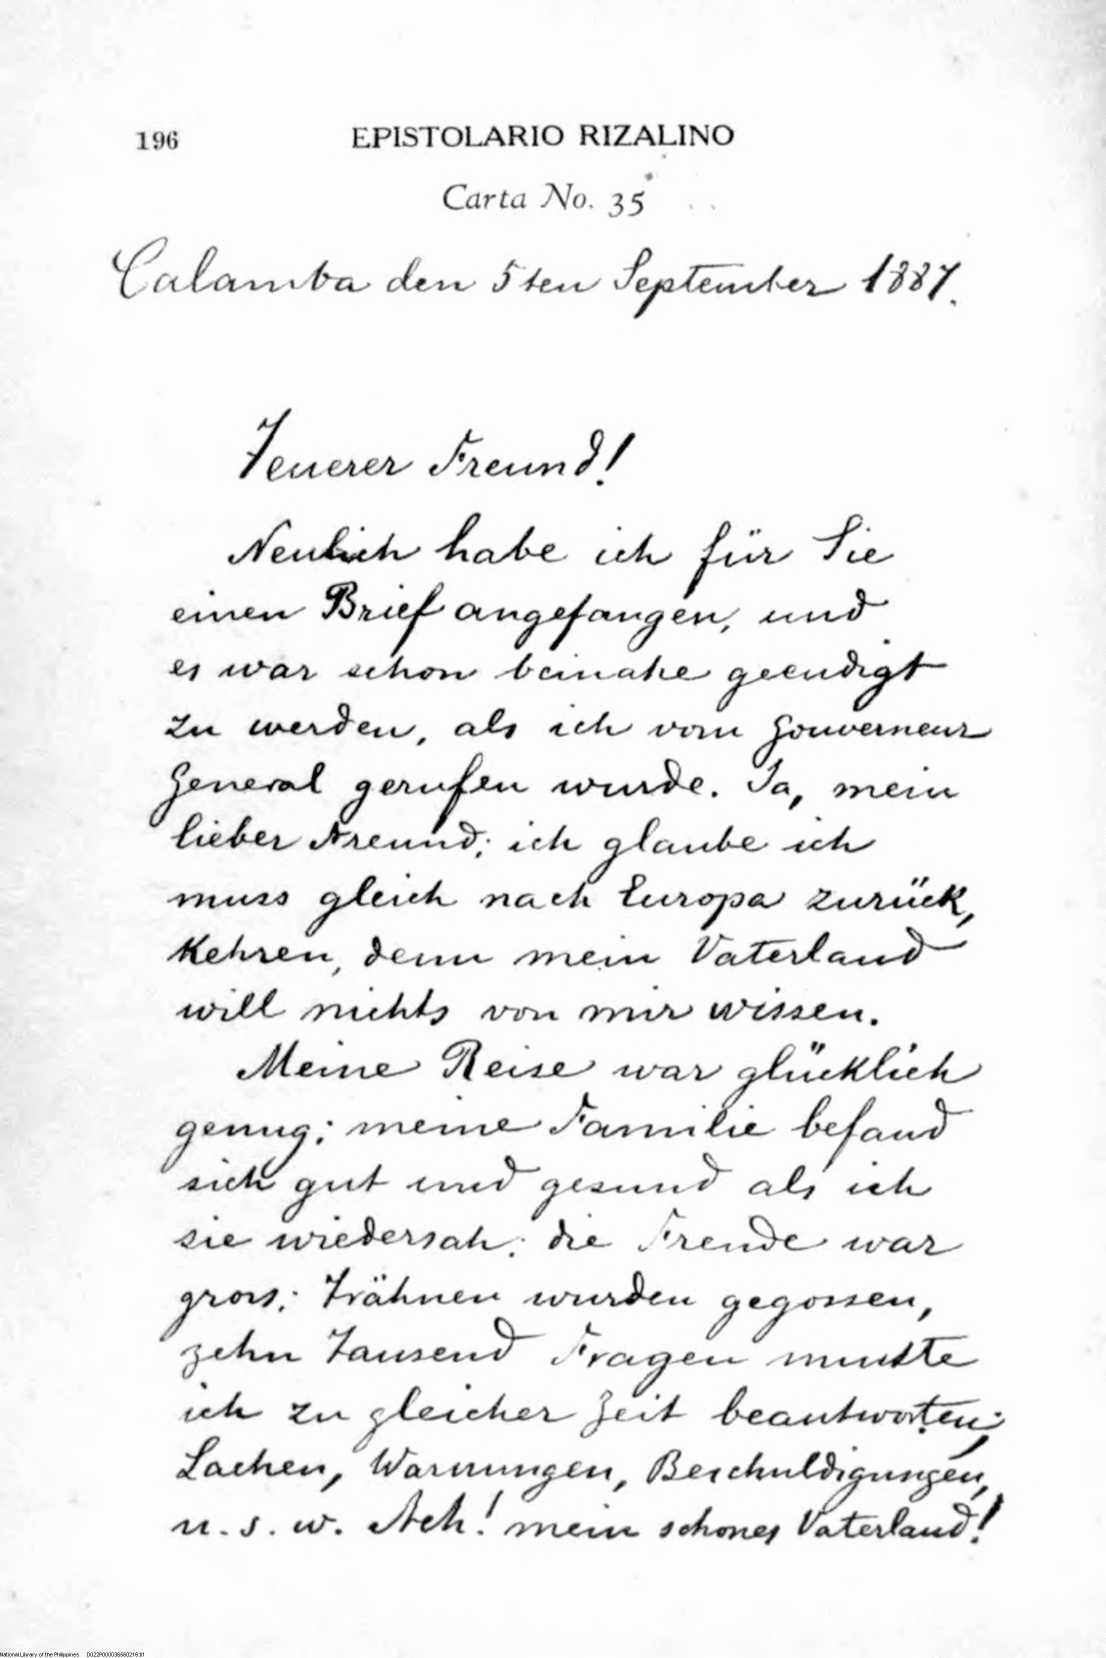 196 EPISTOLARIO RIZALINO
Carta No. 35
Calamba den 5ten September 1887.
Teuerer Freund!
Neulich habe ich für Sie
einen Brief angefangen, und
es war schon beinahe geendigt
zu werden, als ich vom Gouverneur
General gerufen wurde. Ja, mein
lieber Freund; ich glaube ich
muss gleich nach Europa zurück,
kehren, denn mein Vaterland
will nichts von mir wissen.
Meine Reise war glücklich
genug; meine Familie befand
sich gut und gesund als ich
sie wiedersah; die Freude war
gross; Trähnen wurden gegossen,
zehn Tausend Fragen musste
ich zu gleicher Zeit beantworten;
Lachen, Warnungen, Beschuldigungen,
u. s. w. Ach! mein schones Vaterland!
National Library of the Philippines